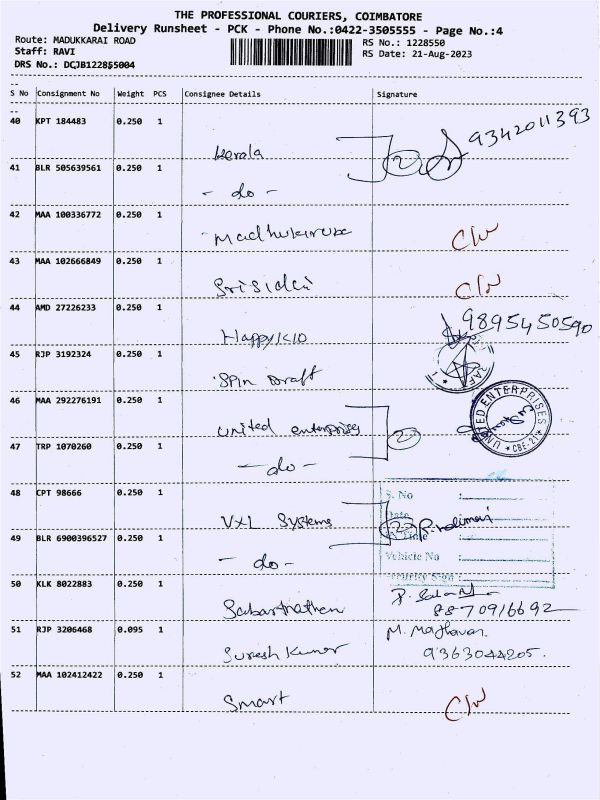 THE PROFESSIONAL COURIERS, COIMBATORE
Delivery Runsheet - PCK - Phone No.:0422-3505555 - Page No.:4
Route: MADUKKARAI ROAD
RS No.: 1228550
Staff: RAVI
RS Date: 21-Aug-2023
DRS No.: DCJB122855004
S No Consignment No Weight PCS Consignee Details Signature
40 KPT 184483 0.250 1 Kerala 2 9342011393
41 BLR 505639561 0.250 1 - do -
42 MAA 100336772 0.250 1 C/N
43 MAA 102666849 0.250 1 C/N
44 AMD 27226233 0.250 1 9895450590
45 RJP 3192324 0.250 1 Spin Draft
46 MAA 292276191 0.250 1 United enterprises 2 UNITED ENTERPRISES * CBE-21 *
47 TRP 1070260 0.250 1 - do -
48 CPT 98666 0.250 1 VXL Systems 2 S. No
Date
Time
49 BLR 6900396527 0.250 1 - do - Vehicle No
Security Sign
50 KLK 8022883 0.250 1 8870916692
51 RJP 3206468 0.095 1 Suresh Kumar M. Maghavan.
9363044205.
52 MAA 102412422 0.250 1 Smart C/N